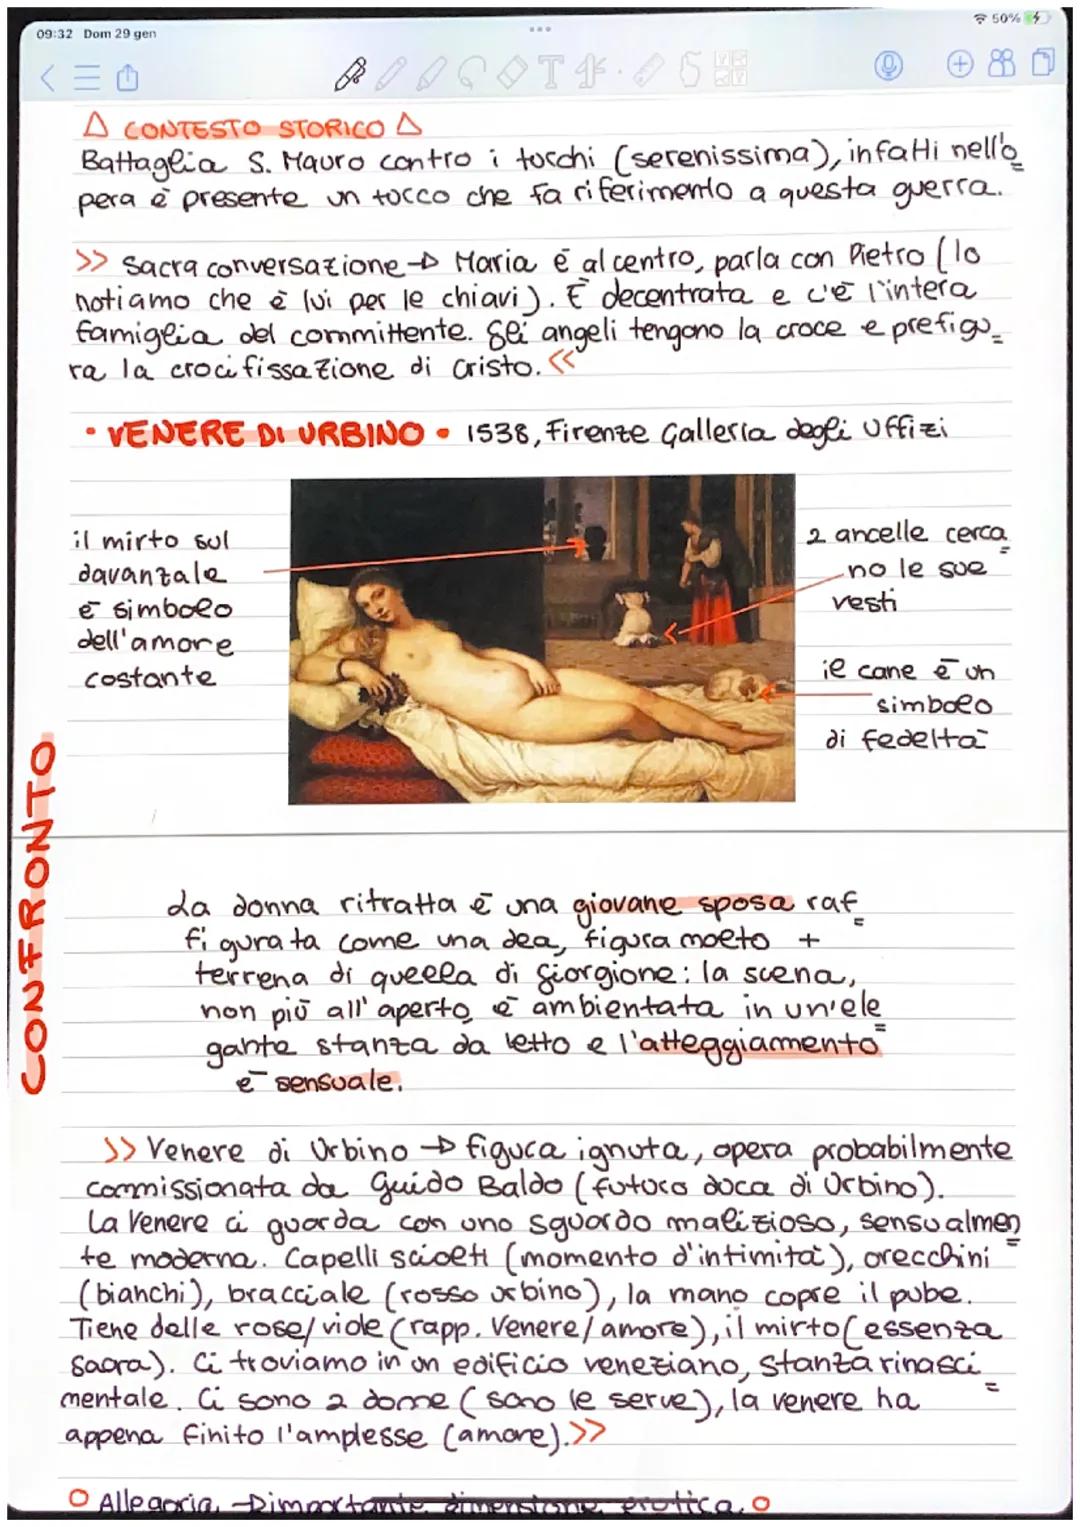 09:32 Dom 29 gen
50%
△ CONTESTO STORICO △
Battaglia S. Mauro contro i turchi (serenissima), infatti nell'o
pera è presente un turco che fa riferimento a questa guerra.
>> Sacra conversazione → Maria è al centro, parla con Pietro (lo
notiamo che è lui per le chiavi). È decentrata e c'è l'intera
famiglia del committente. Gli angeli tengono la croce e prefigu
ra la crocifissazione di Cristo. <<
• VENERE DI URBINO • 1538, Firenze Galleria degli Uffizi
il mirto sul
davanzale
è simbolo
dell'amore
costante
2 ancelle cerca
no le sue
vesti
il cane è un
simbolo
di fedeltà
CONFRONTO
La donna ritratta è una giovane sposa raf
figurata come una dea, figura molto +
terrena di quella di Giorgione: la scena,
non più all'aperto, è ambientata in un'ele
gante stanza da letto e l'atteggiamento
è sensuale.
>> Venere di Urbino → figura ignuta, opera probabilmente
commissionata da Guido Baldo (futuro duca di Urbino).
La Venere ci guarda con uno sguardo malizioso, sensualmen
te moderna. Capelli sciolti (momento d'intimità), orecchini
(bianchi), bracciale (rosso urbino), la mano copre il pube.
Tiene delle rose/viole (rapp. Venere/amore), il mirto (essenza
sacra). Ci troviamo in un edificio veneziano, stanza rinasci
mentale. Ci sono 2 donne (sono le serve), la venere ha
appena finito l'amplesse (amore).>>
○ Allegoria → importante dimensione erotica. ○